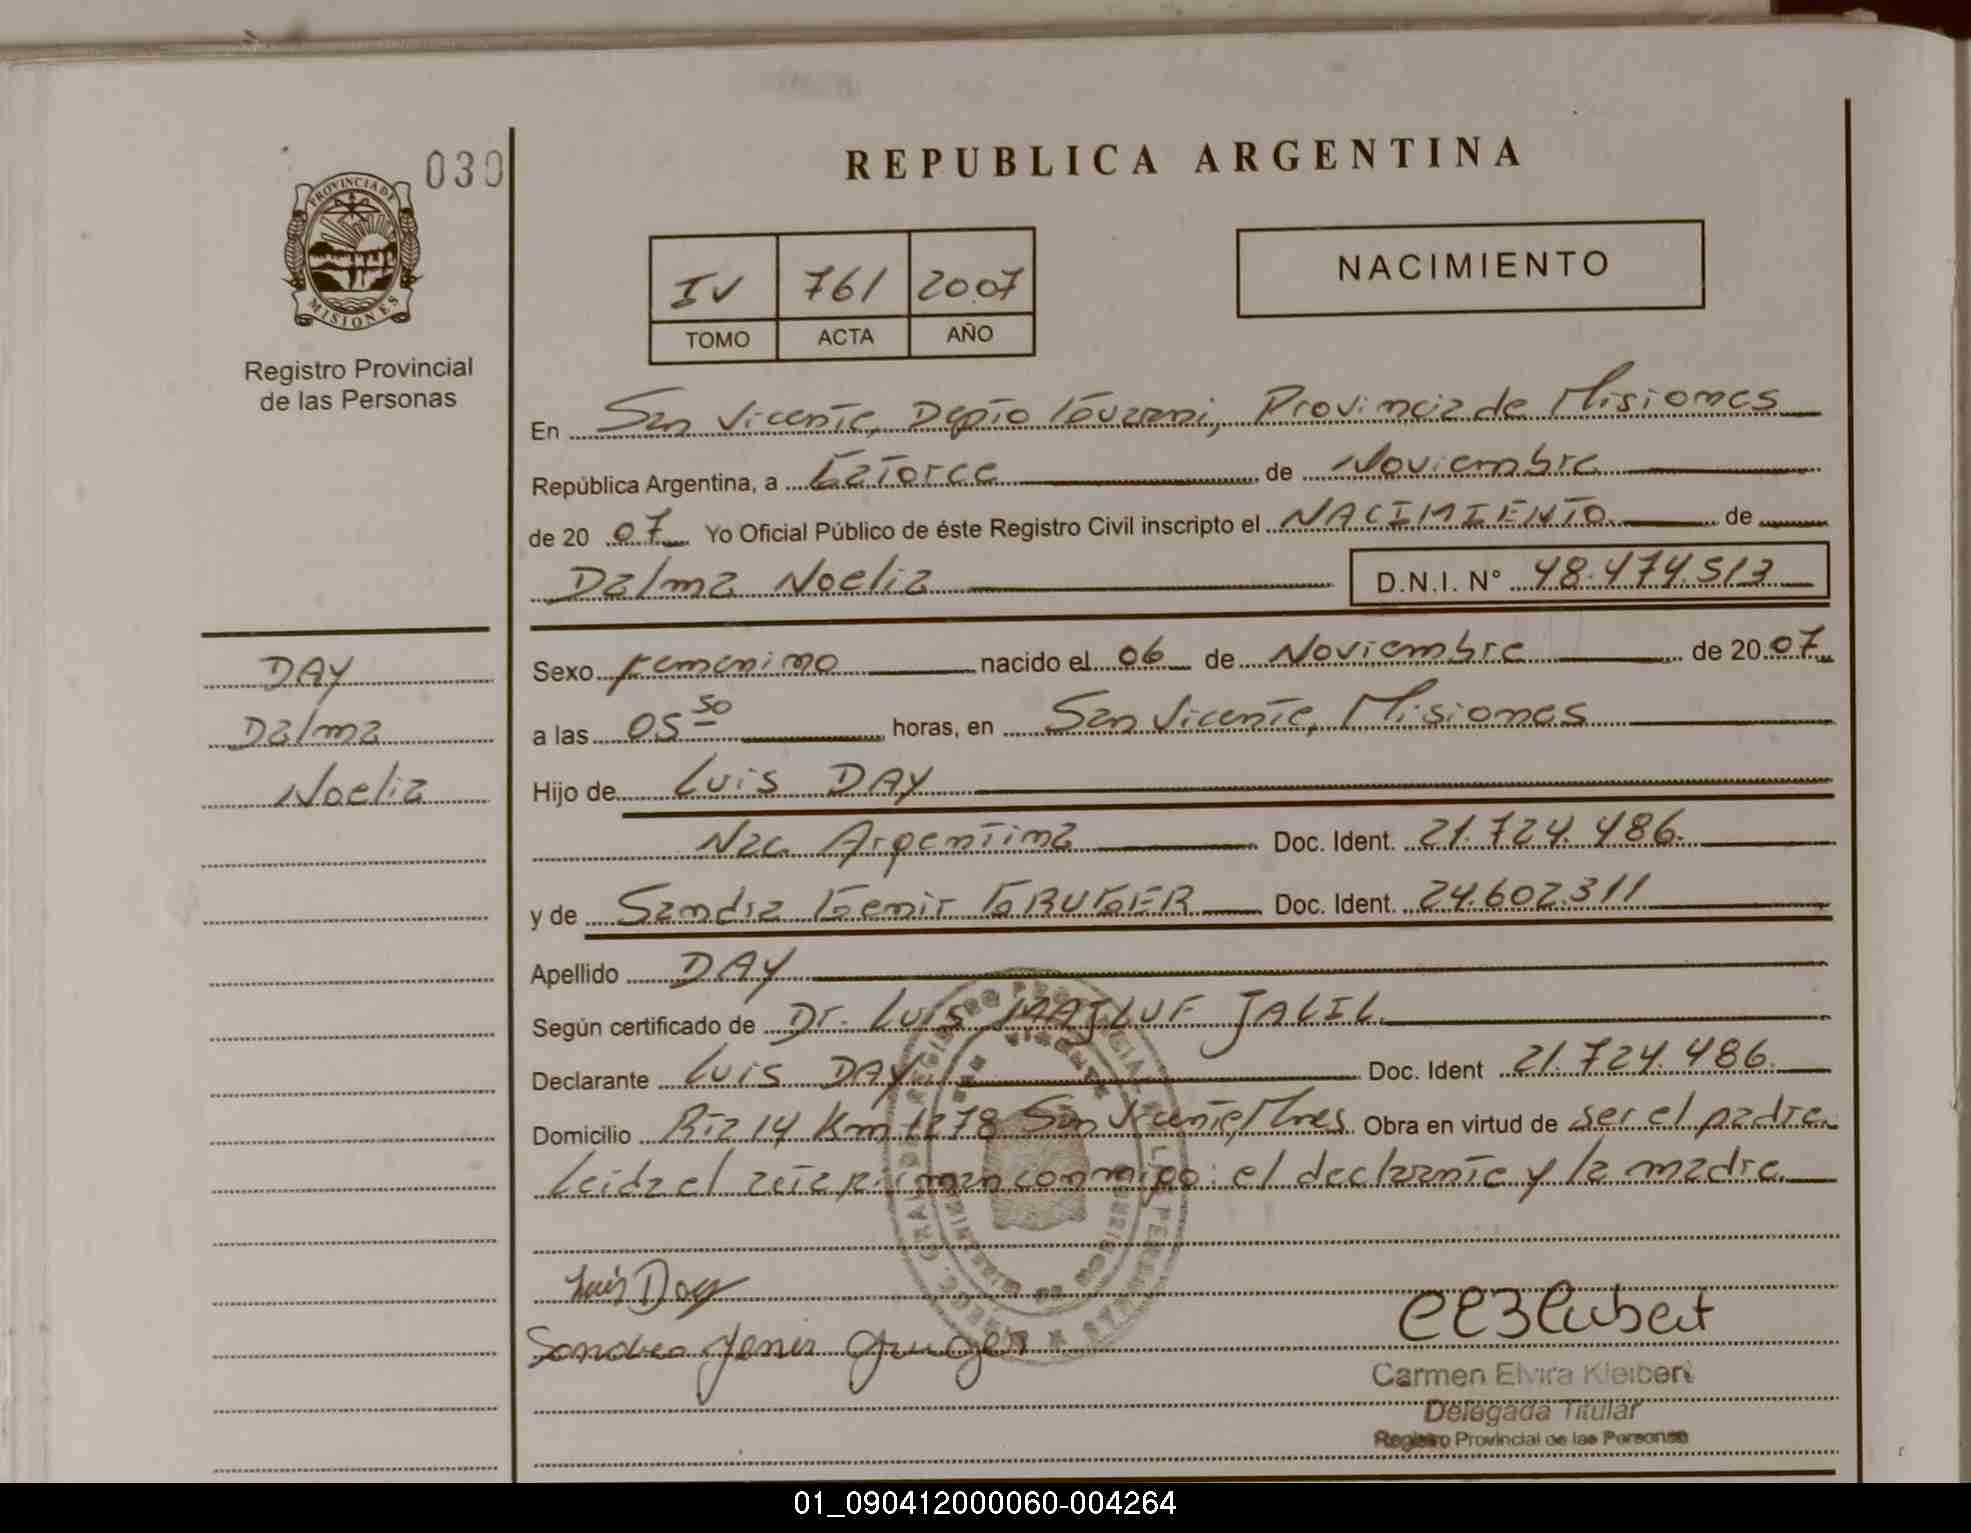 030
PROVINCIA DE
MISIONES
Registro Provincial
de las Personas
REPUBLICA ARGENTINA
IV 761 2007
TOMO ACTA AÑO
NACIMIENTO
En San Vicente, Depto Guarani, Provincia de Misiones
República Argentina, a Catorce de Noviembre
de 20 07 Yo Oficial Público de éste Registro Civil inscripto el NACIMIENTO de
Dalma Noelia D.N.I. N° 48.474.513
DAY
Dalma
Noelia
Sexo femenino nacido el 06 de Noviembre de 20 07
a las 05 50 horas, en San Vicente, Misiones
Hijo de Luis DAY
Nac. Argentina Doc. Ident. 21.724.486.
y de Sandra Genir GRUGER Doc. Ident. 24.602.311
Apellido DAY
Según certificado de Dr. Luis MAJLUF JALIL
Declarante Luis DAY Doc. Ident 21.724.486.
Domicilio Rta 14 Km 1278 San Vicente, Mnes. Obra en virtud de ser el padre.
Leida el acta firman conmigo: el declarante y la madre.
Luis Day
Sandra Genir Gruger
Carmen Elvira Kleibert
Delegada Titular
Registro Provincial de las Personas
01_090412000060-004264